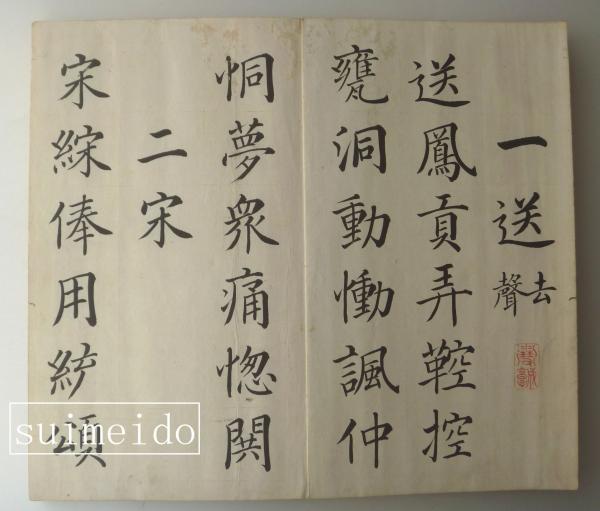 一送
去聲
送鳳貢弄鞚控
甕洞動慟諷仲
恫夢衆痛惚閧
二宋
宋綜俸用統頌
suimeido